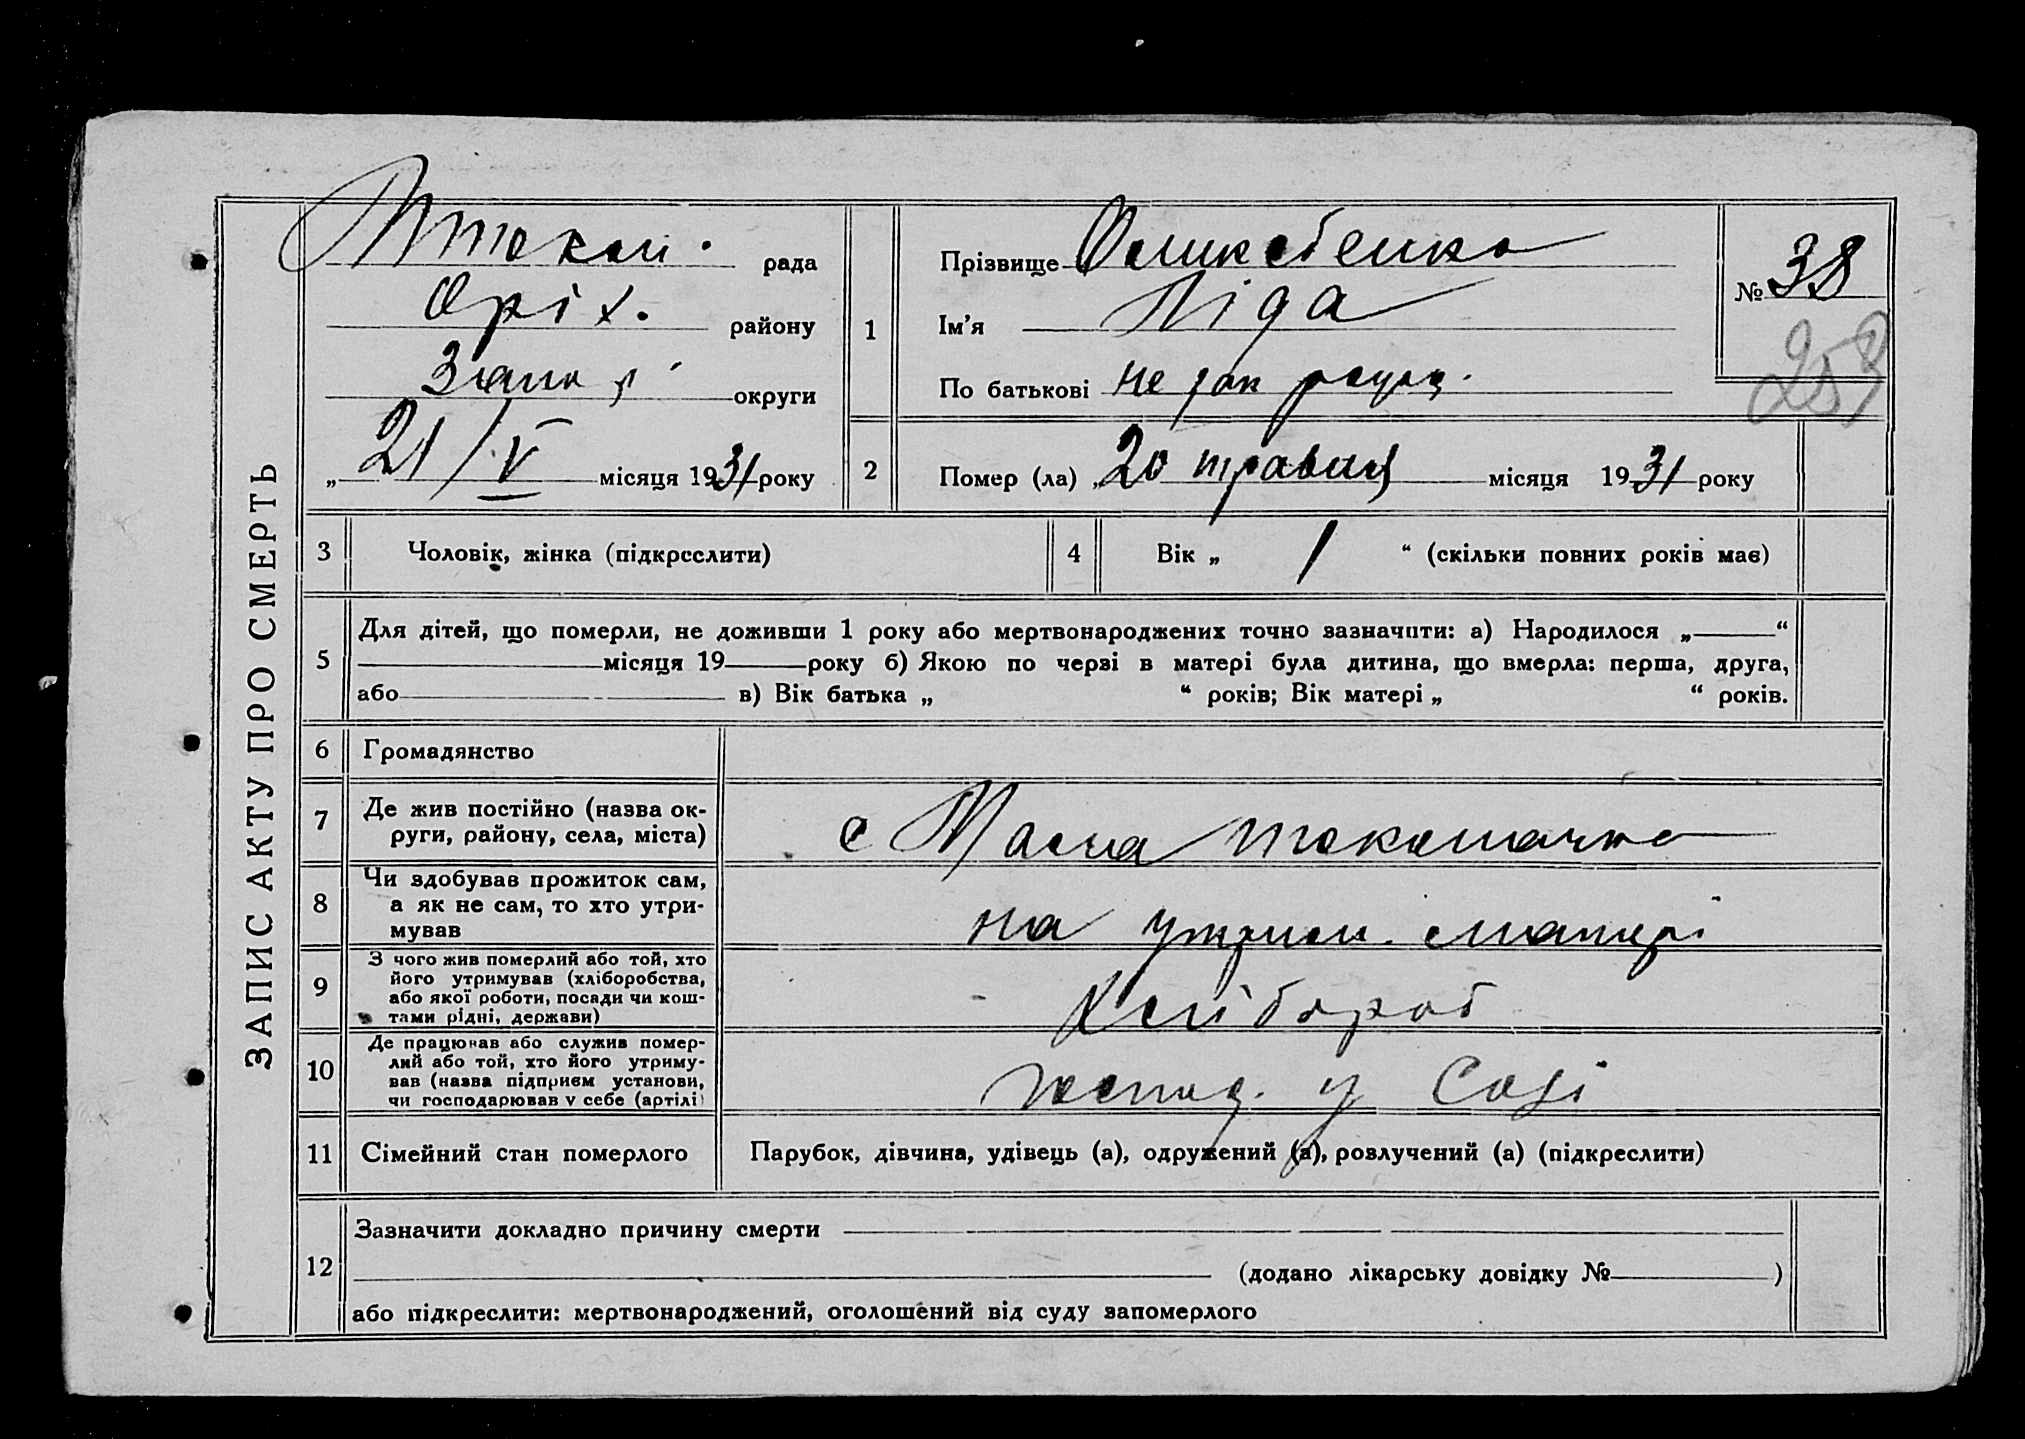 ЗАПИС АКТУ ПРО СМЕРТЬ
М токм. рада
Оріх. району
Запор округи
„ 21/V місяця 1931 року
1
Прізвище
Ім'я Ліда
По батькові не
№ 38
253
2
Помер (ла) „ 20 травня місяця 1931 року
3
Чоловік, жінка (підкреслити)
4
Вік „ 1 “ (скільки повних років має)
5
Для дітей, що померли, не доживши 1 року або мертвонароджених точно зазначити: а) Народилося „ “
місяця 19 року б) Якою по черзі в матері була дитина, що вмерла: перша, друга,
або в) Вік батька „ “ років; Вік матері „ “ років.
6
Громадянство
7
Де жив постійно (назва ок-
руги, району, села, міста)
с Мала токмачка
8
Чи здобував прожиток сам,
а як не сам, то хто утри-
мував
на утрим. матері
9
З чого жив померлий або той, хто
його утримував (хліборобства,
або якої роботи, посади чи кош-
тами рідні, держави)
Хлібороб
10
Де працював або служив помер-
лий або той, хто його утриму-
вав (назва підприєм установи,
чи господарював у себе (артілі)
господ. у
11
Сімейний стан померлого
Парубок, дівчина, удівець (а), одружений (а), розлучений (а) (підкреслити)
12
Зазначити докладно причину смерти
(додано лікарську довідку № )
або підкреслити: мертвонароджений, оголошений від суду запомерлого